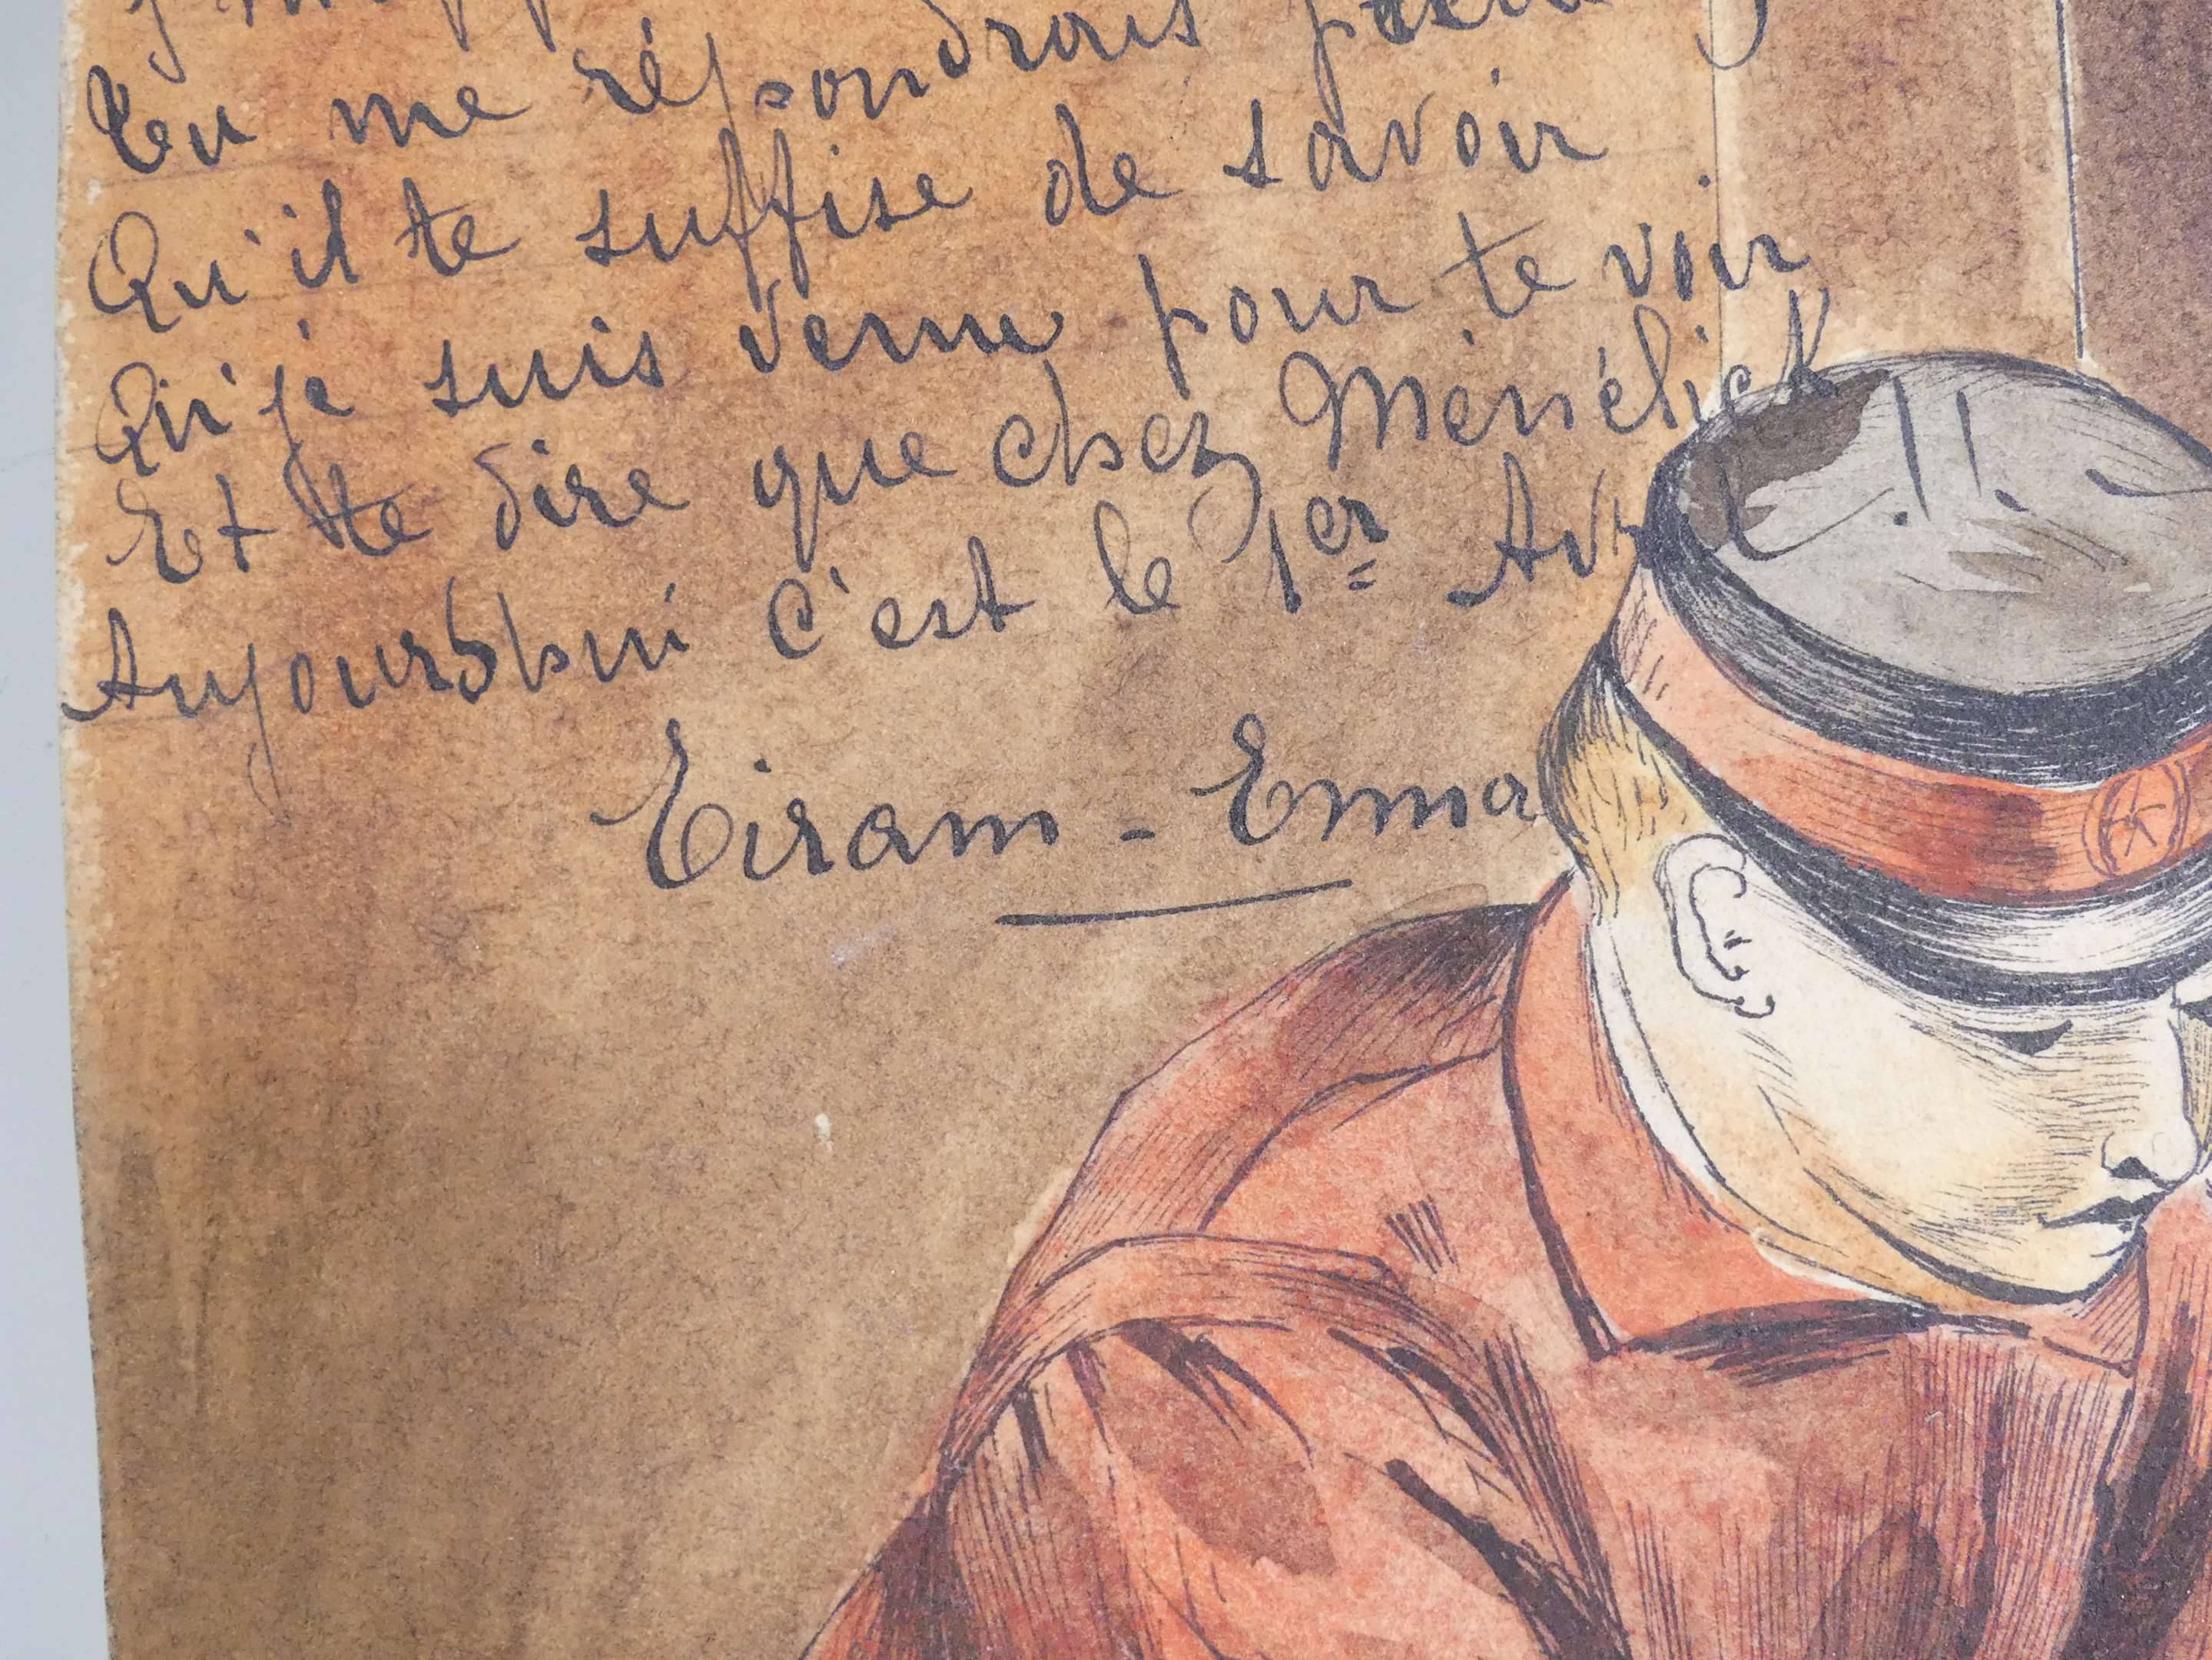 Tu me répondrais
Qu'il te suffise de savoir
Qu'je suis venu pour te voir
Et te dire que chez Ménélick
Aujourd'hui c'est le 1er Av
Eiram - Enna